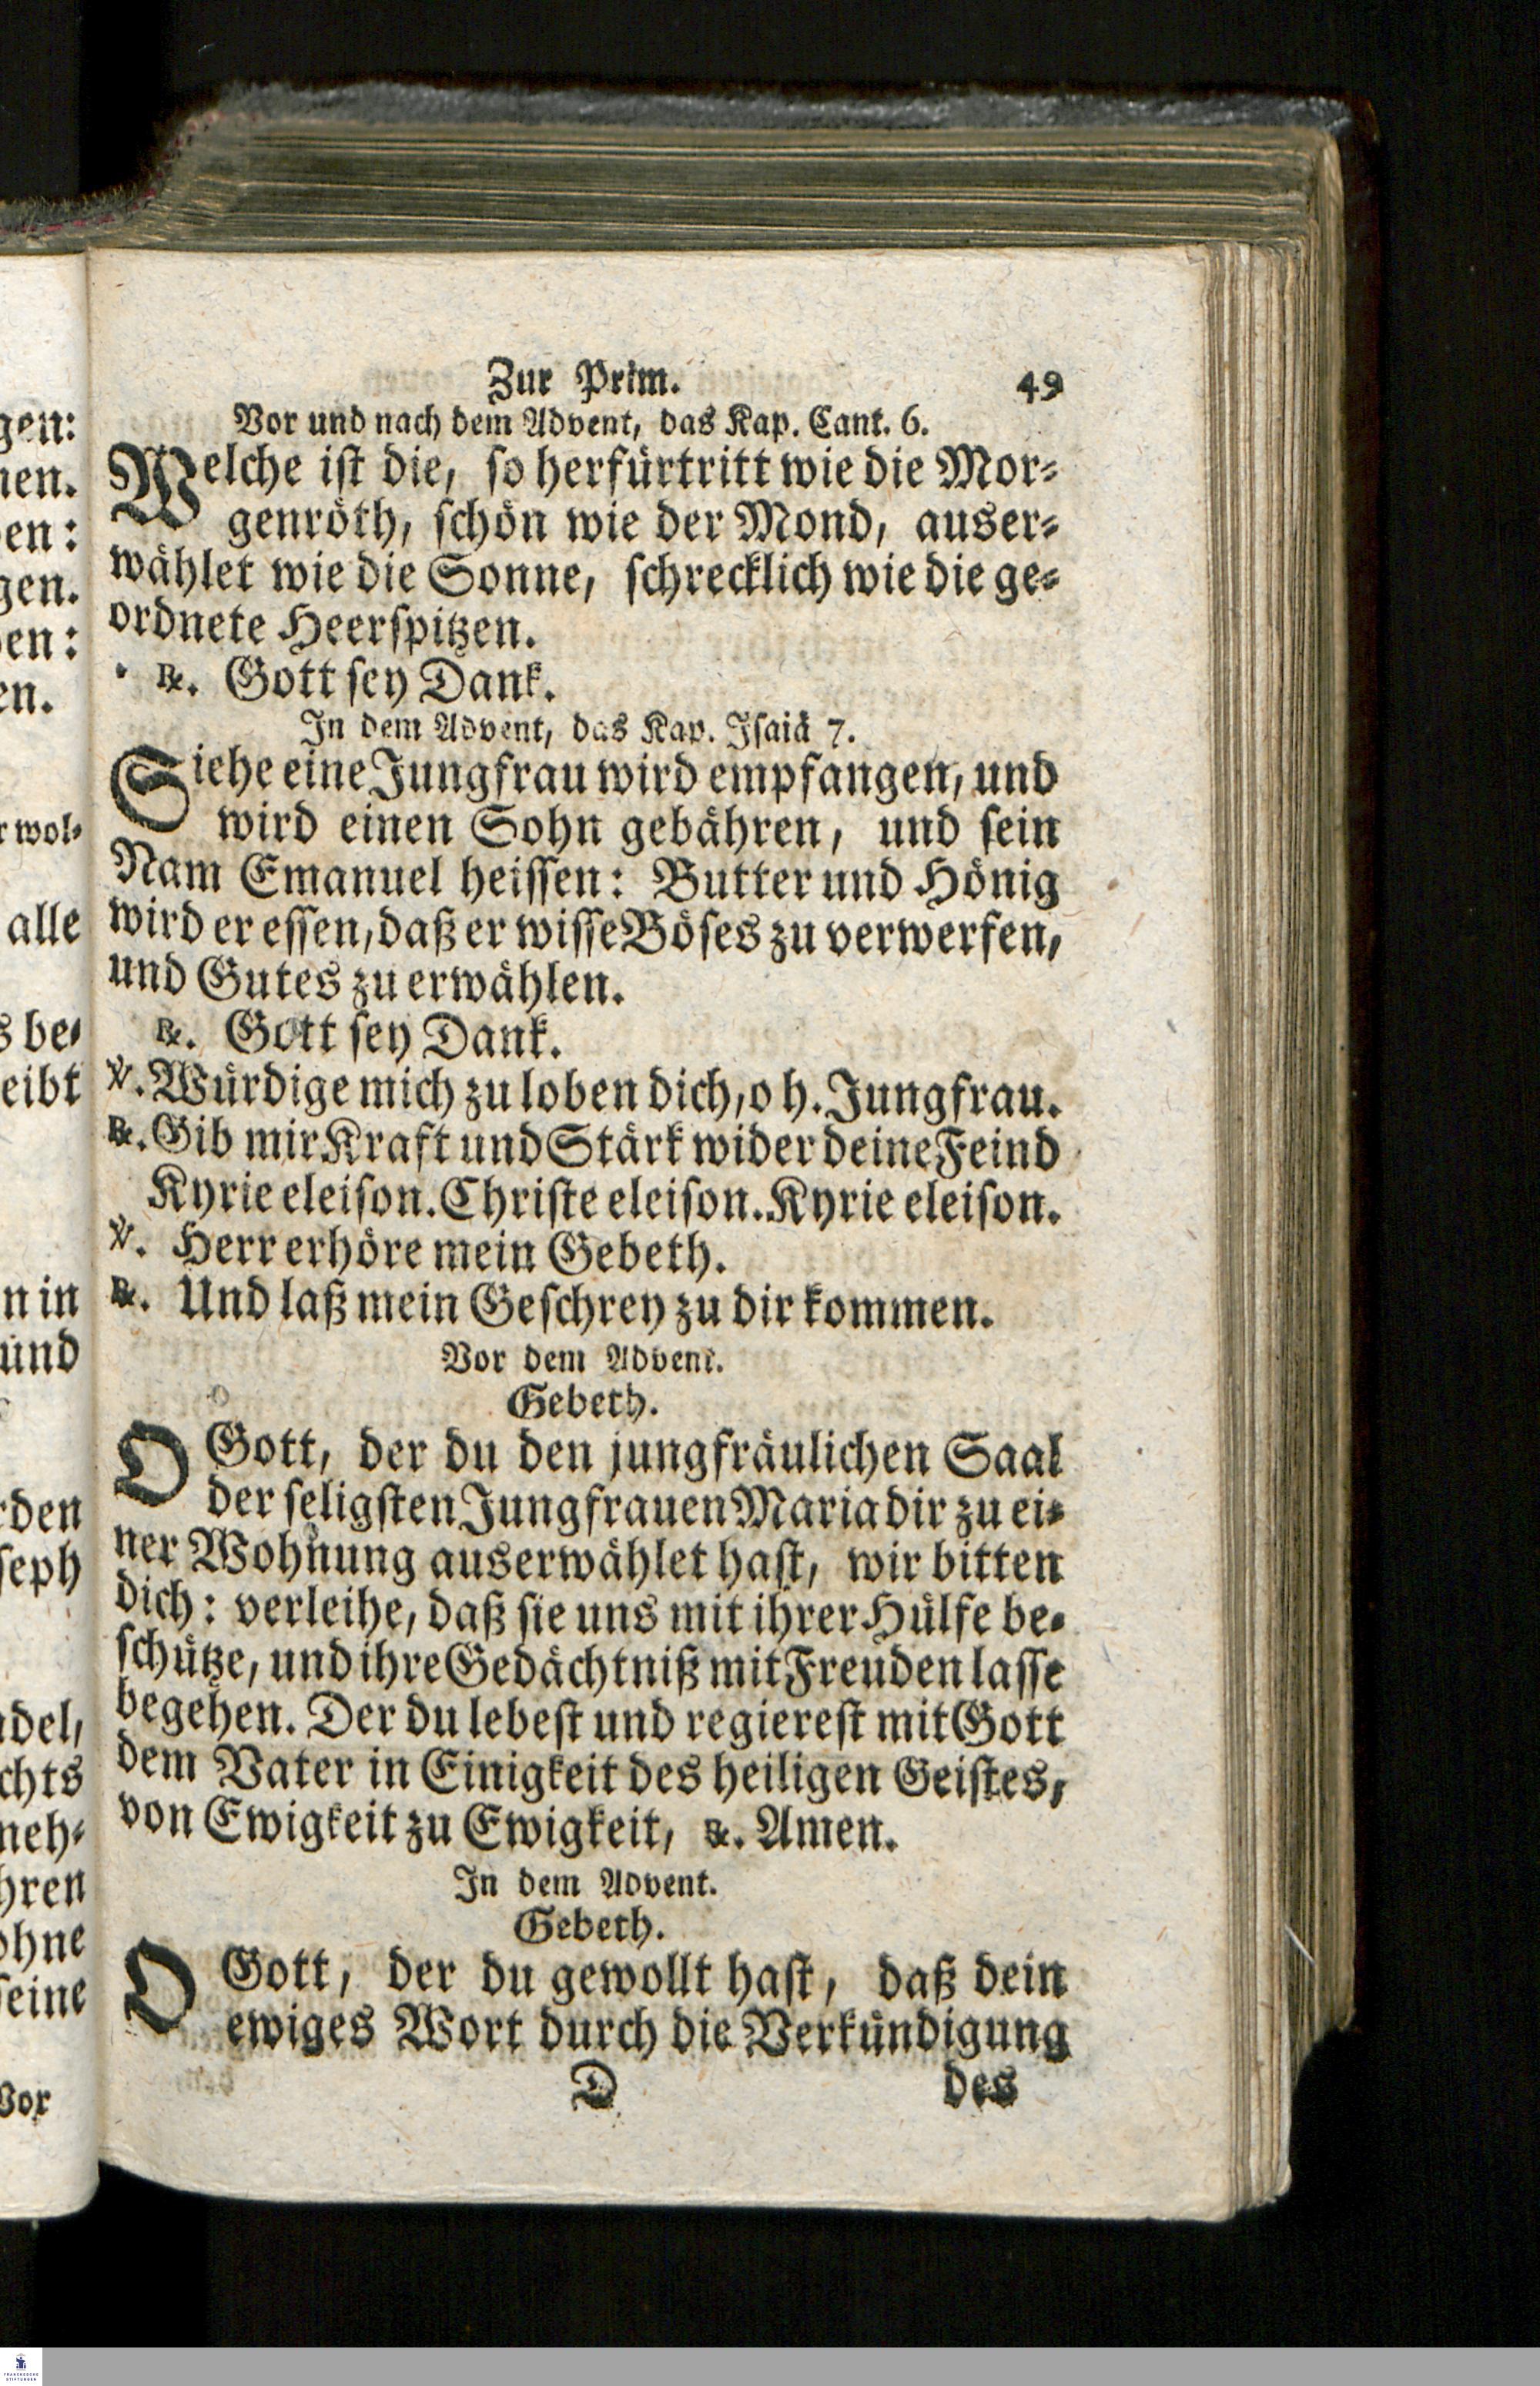 Zur Prim. 49
Vor und nach dem Advent, das Kap. Cant. 6.
Welche ist die, so herfürtritt wie die Mor-
genröth, schön wie der Mond, auser-
wählet wie die Sonne, schrecklich wie die ge-
ordnete Heerspitzen.
℟. Gott sey Dank.
In dem Advent, das Kap. Isaiä 7.
Siehe eine Jungfrau wird empfangen, und
wird einen Sohn gebähren, und sein
Nam Emanuel heissen: Butter und Hönig
wird er essen, daß er wisse Böses zu verwerfen,
und Gutes zu erwählen.
℟. Gott sey Dank.
℣. Würdige mich zu loben dich, o h. Jungfrau.
℟. Gib mir Kraft und Stärk wider deine Feind
Kyrie eleison. Christe eleison. Kyrie eleison.
℣. Herr erhöre mein Gebeth.
℟. Und laß mein Geschrey zu dir kommen.
Vor dem Advent.
Gebeth.
O Gott, der du den jungfräulichen Saal
der seligsten Jungfrauen Maria dir zu ei-
ner Wohnung auserwählet hast, wir bitten
dich: verleihe, daß sie uns mit ihrer Hülfe be-
schütze, und ihre Gedächtniß mit Freuden lasse
begehen. Der du lebest und regierest mit Gott
dem Vater in Einigkeit des heiligen Geistes,
von Ewigkeit zu Ewigkeit, ℟. Amen.
In dem Advent.
Gebeth.
O Gott, der du gewollt hast, daß dein
ewiges Wort durch die Verkündigung
D des